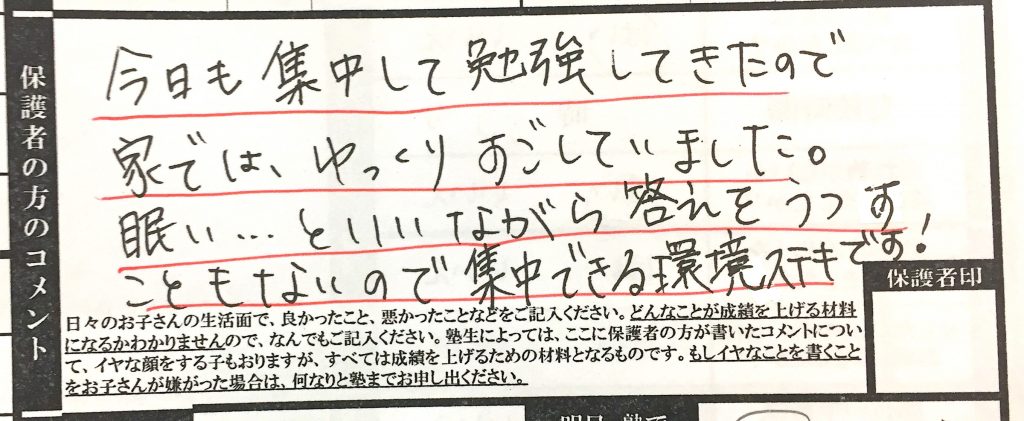 保護者の方のコメント
今日も集中して勉強してきたので
家では、ゆっくりすごしていました。
眠い…といいながら答えをうつす
こともないので集中できる環境ステキです!
保護者印
日々のお子さんの生活面で、良かったこと、悪かったことなどをご記入ください。どんなことが成績を上げる材料
になるかわかりませんので、なんでもご記入ください。塾生によっては、ここに保護者の方が書いたコメントについ
て、イヤな顔をする子もおりますが、すべては成績を上げるための材料となるものです。もしイヤなことを書くこと
をお子さんが嫌がった場合は、何なりと塾までお申し出ください。